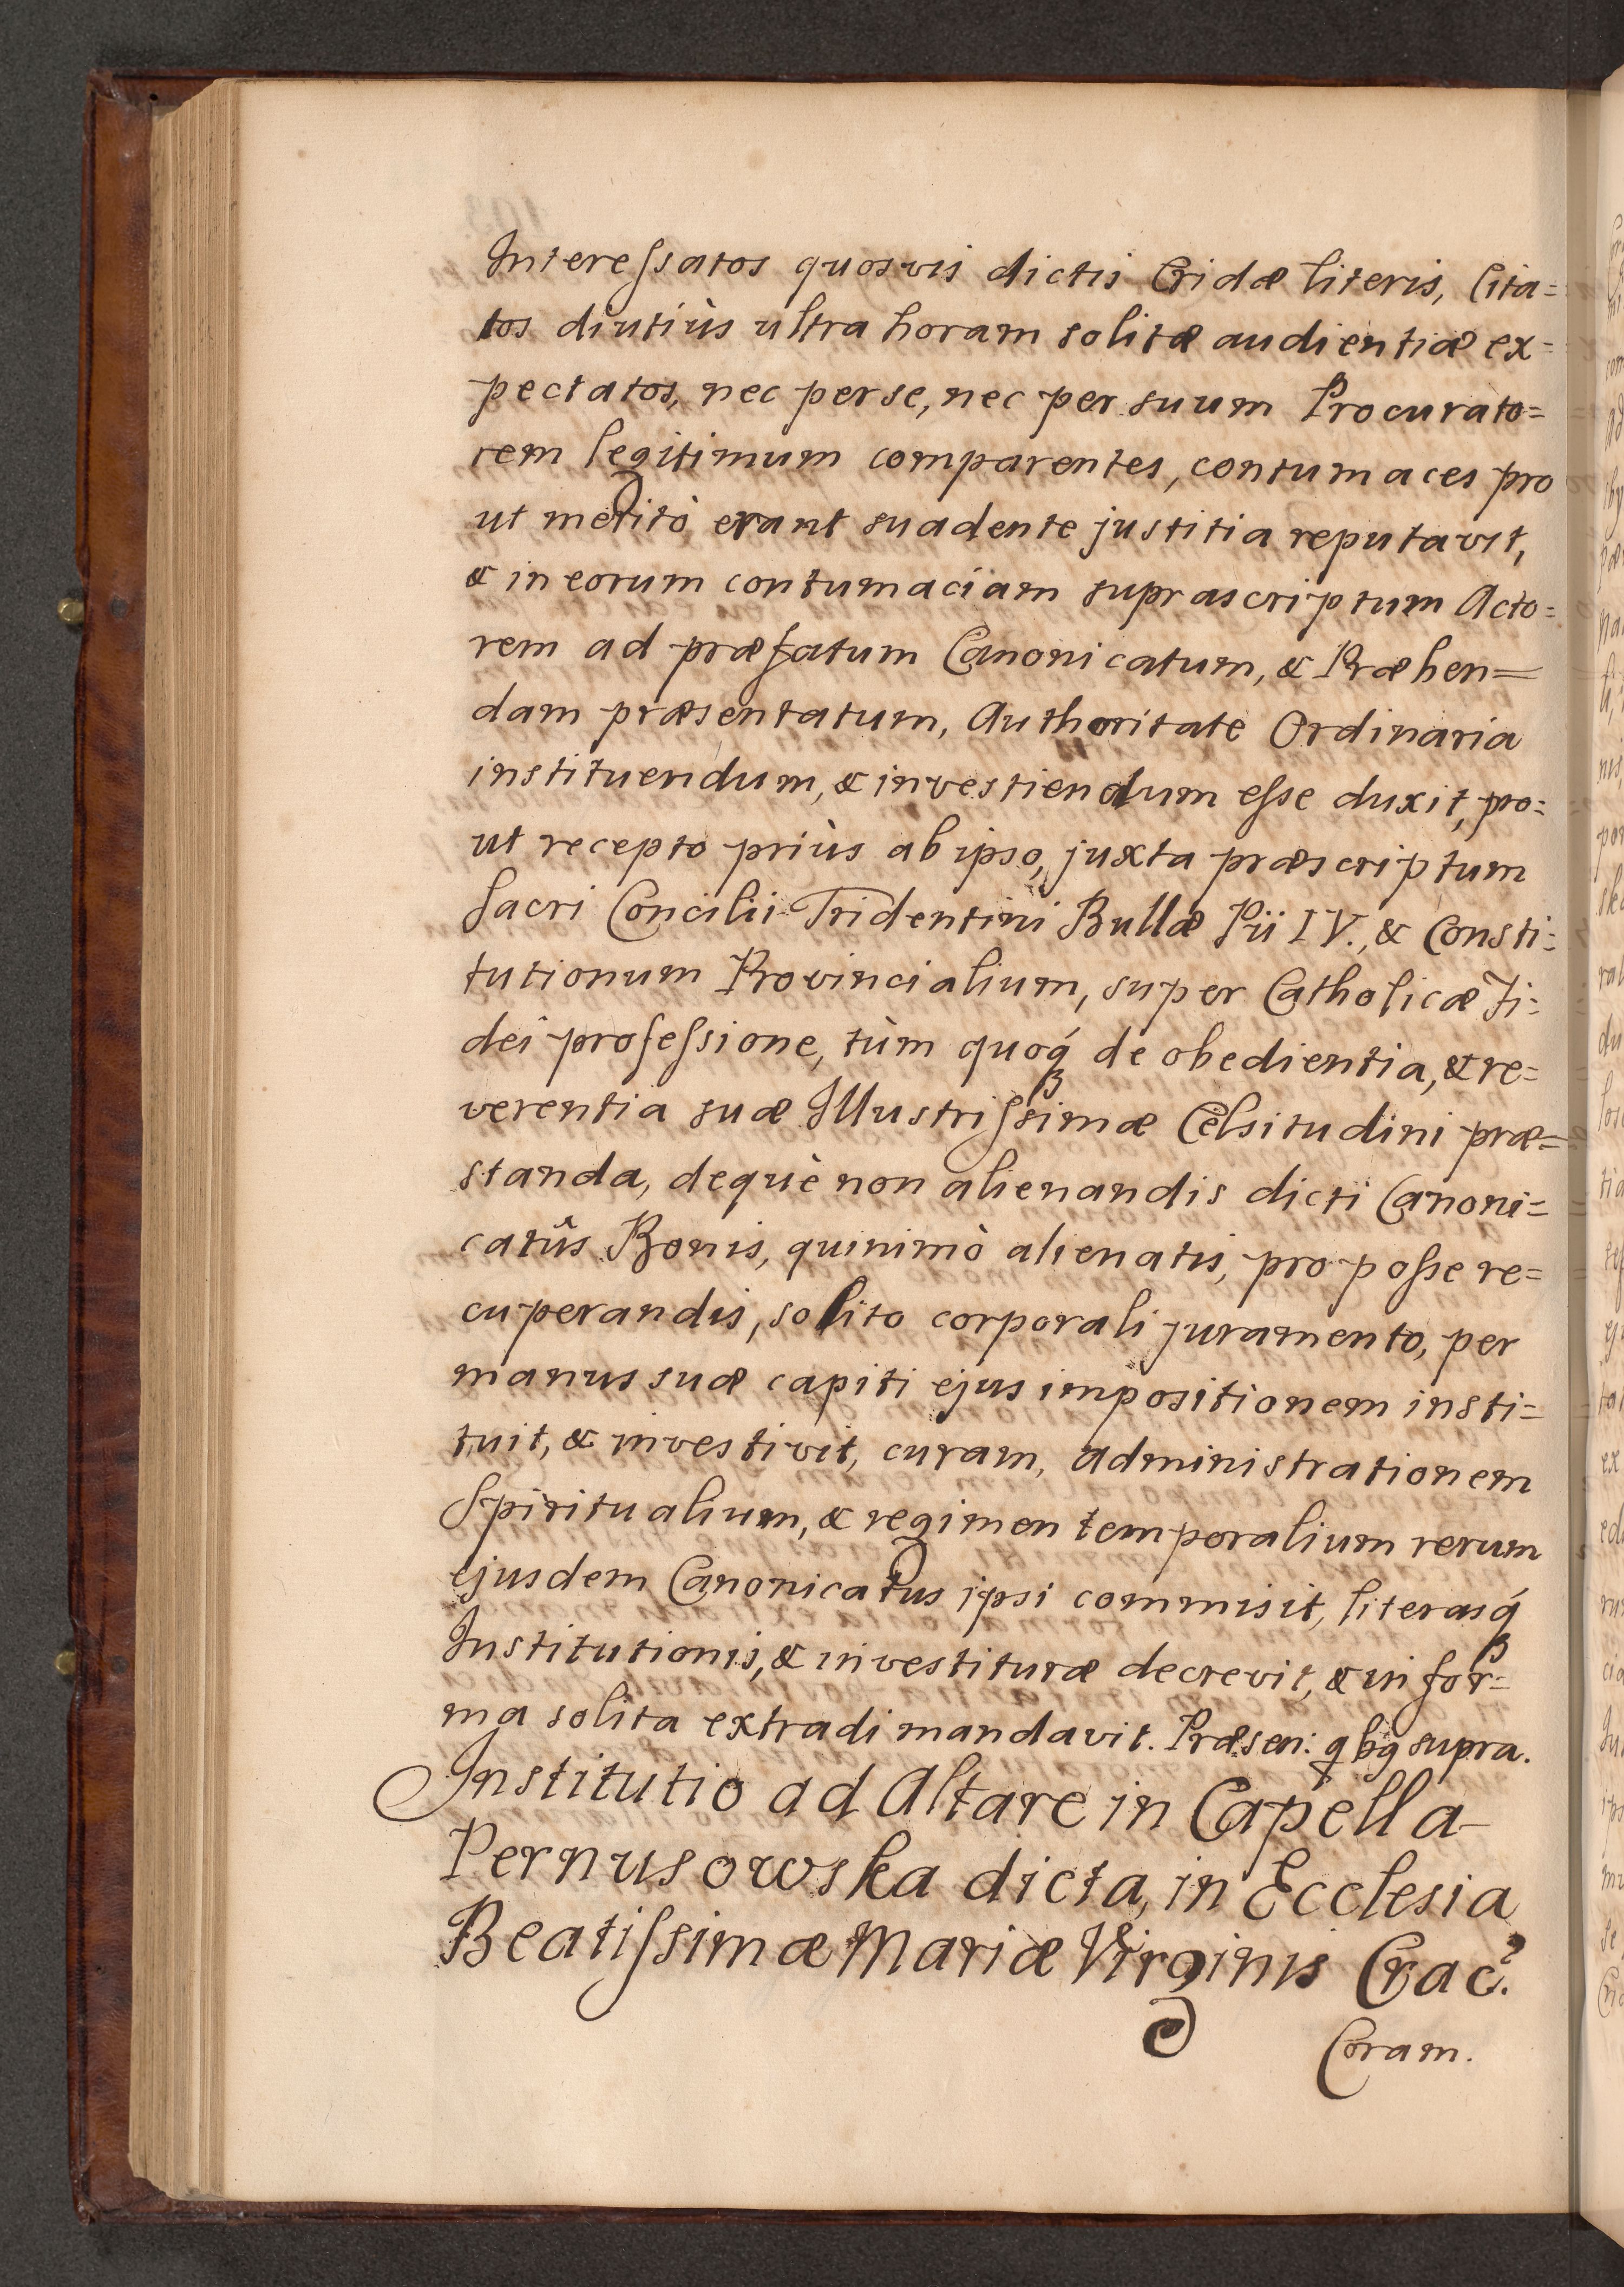 Interessatos quosvis dictis Cridæ literis, Cita=
tos diutiùs ultra horam solitæ audientiæ ex=
pectatos, nec per se, nec per suum Procurato=
rem legitimum comparentes, contumaces pro
ut meritò erant suadente justitia reputavit,
& in eorum contumaciam suprascriptum Acto=
rem ad præfatum Canonicatum, & Præben=
dam præsentatum, Authoritate Ordinaria
instituendum, & investiendum esse duxit, pro=
ut recepto priùs ab ipso, juxta præscriptum
Sacri Concilii Tridentini Bullæ Pii IV., & Consti=
tutionum Provincialium, super Catholicæ Fi=
dei professione, tùm quoq́ȝ de obedientia, & re=
verentia suæ Illustrissimæ Celsitudini præ=
standa, dequè non alienandis dicti Canoni=
catûs Bonis, quinimò alienatis, pro posse re=
cuperandis, solito corporali juramento, per
manus suæ capiti ejus impositionem insti=
tuit, & investivit, curam, administrationem
Spiritualium, & regimen temporalium rerum
ejusdem Canonicatus ipsi commisit, literasq́ȝ
Institutionis, & investituræ decrevit, & in for=
ma solita extradi mandavit. Præsen: q̃bq̃ supra.
Institutio ad Altare in Capella
Pernusowska dicta, in Ecclesia
Beatissimæ Mariæ Virginis Crac.
Coram.